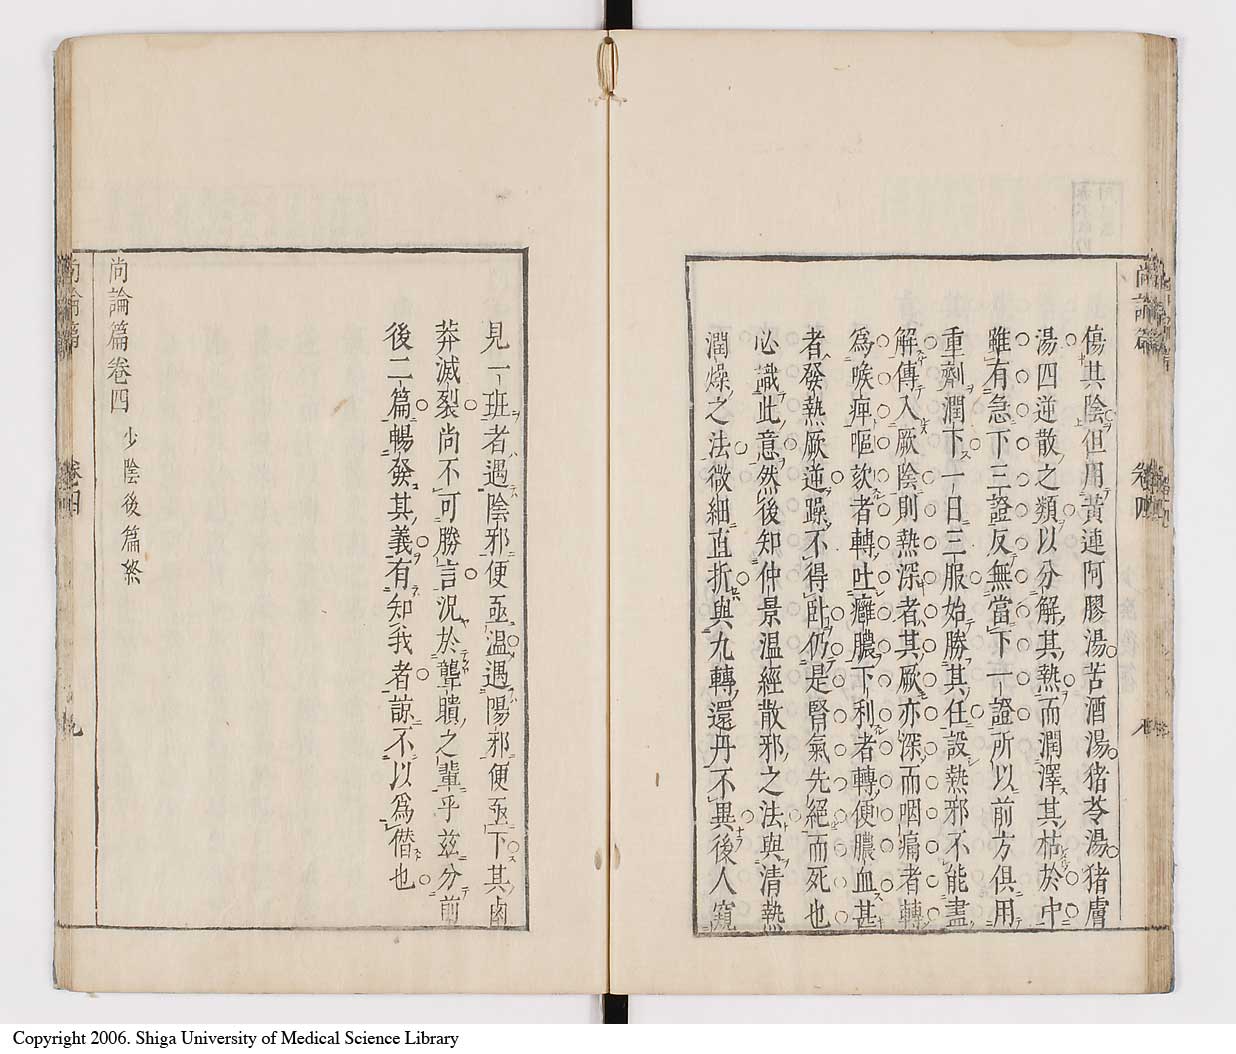 傷其陰但用黃連阿膠湯苦酒湯猪苓湯猪膚
湯四逆散之類以分解其熱而潤澤其枯於中
雖有急下三證反無當下一證所以前方俱用
重劑潤下一日三服始勝其任設熱邪不能盡
解傳入厥陰則熱深者其厥亦深而咽痛者轉
爲喉痺嘔欬者轉吐癰膿下利者轉便膿血甚
者發熱厥逆躁不得臥仍是腎氣先絕而死也
必識此意然後知仲景溫經散邪之法與清熱
潤燥之法微細直折與九轉還丹不異後人窺
見一班者遇陰邪便亟溫遇陽邪便亟下其鹵
莽滅裂尚不可勝言況於聾聵之輩乎兹分前
後二篇暢發其義有知我者諒不以爲僭也
尚論篇卷四 少陰後篇終
尚論篇 卷四 八
尚論篇 卷四 九
Copyright 2006. Shiga University of Medical Science Library